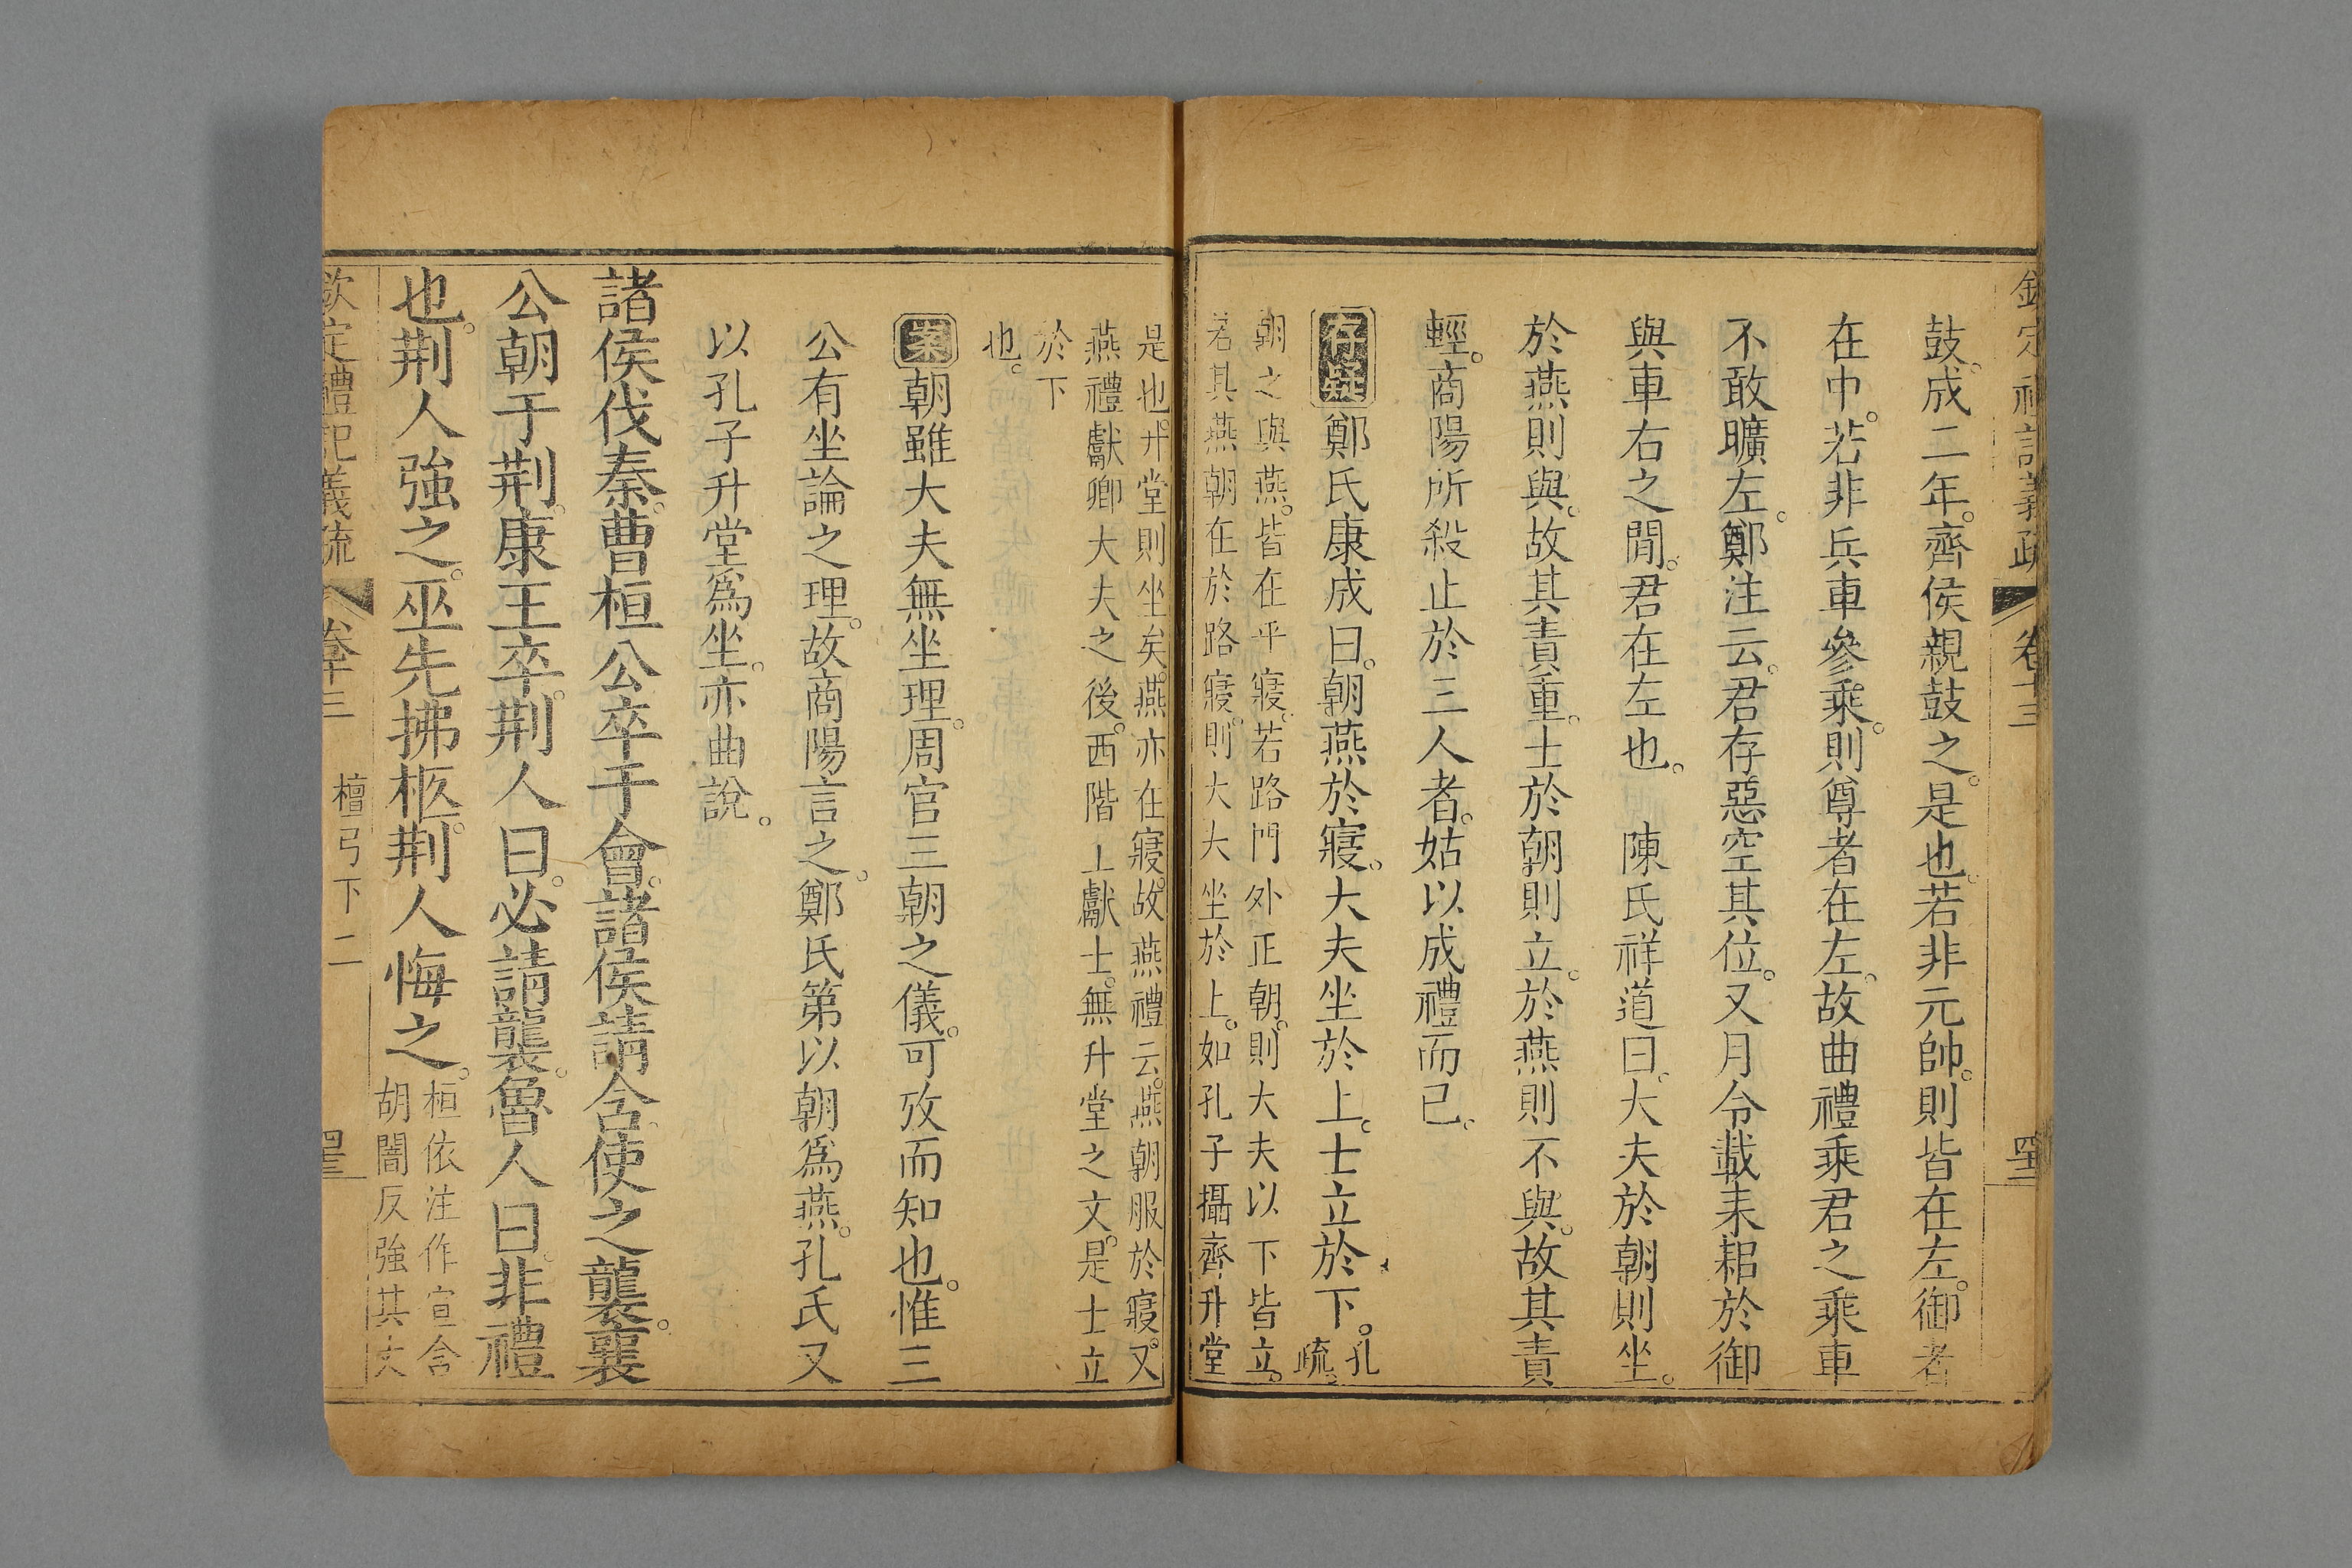 欽定禮記義疏 卷十三
鼓。成二年。齊侯親鼓之。是也。若非元帥。則皆在左。御者
在中。若非兵車參乘。則尊者在左。故曲禮乘君之乘車
不敢曠左。鄭注云。君存惡空其位。又月令載耒耜於御
與車右之閒。君在左也。 陳氏祥道曰。大夫於朝則坐。
於燕則與。故其責重。士於朝則立。於燕則不與。故其責
輕。商陽所殺止於三人者。姑以成禮而已。
存疑鄭氏康成曰。朝燕於寢。大夫坐於上。士立於下。孔疏。
朝之與燕。皆在乎寢。若路門外正朝。則大夫以下皆立。
若其燕朝在於路寢。則大夫坐於上。如孔子攝齊升堂
是也。升堂則坐矣。燕亦在寢。故燕禮云。燕朝服於寢。又
燕禮獻卿大夫之後。西階上獻士。無升堂之文。是士立
於下
也。
案朝雖大夫無坐理。周官三朝之儀。可攷而知也。惟三
公有坐論之理。故商陽言之。鄭氏第以朝爲燕。孔氏又
以孔子升堂爲坐。亦曲說。
諸侯伐秦。曹桓公卒于會。諸侯請含。使之襲。襄
公朝于荆。康王卒。荆人曰。必請襲。魯人曰。非禮
也。荆人強之。巫先拂柩。荆人悔之。
桓依注作宣含
胡闇反強其丈
欽定禮記義疏 卷十三 檀弓下二